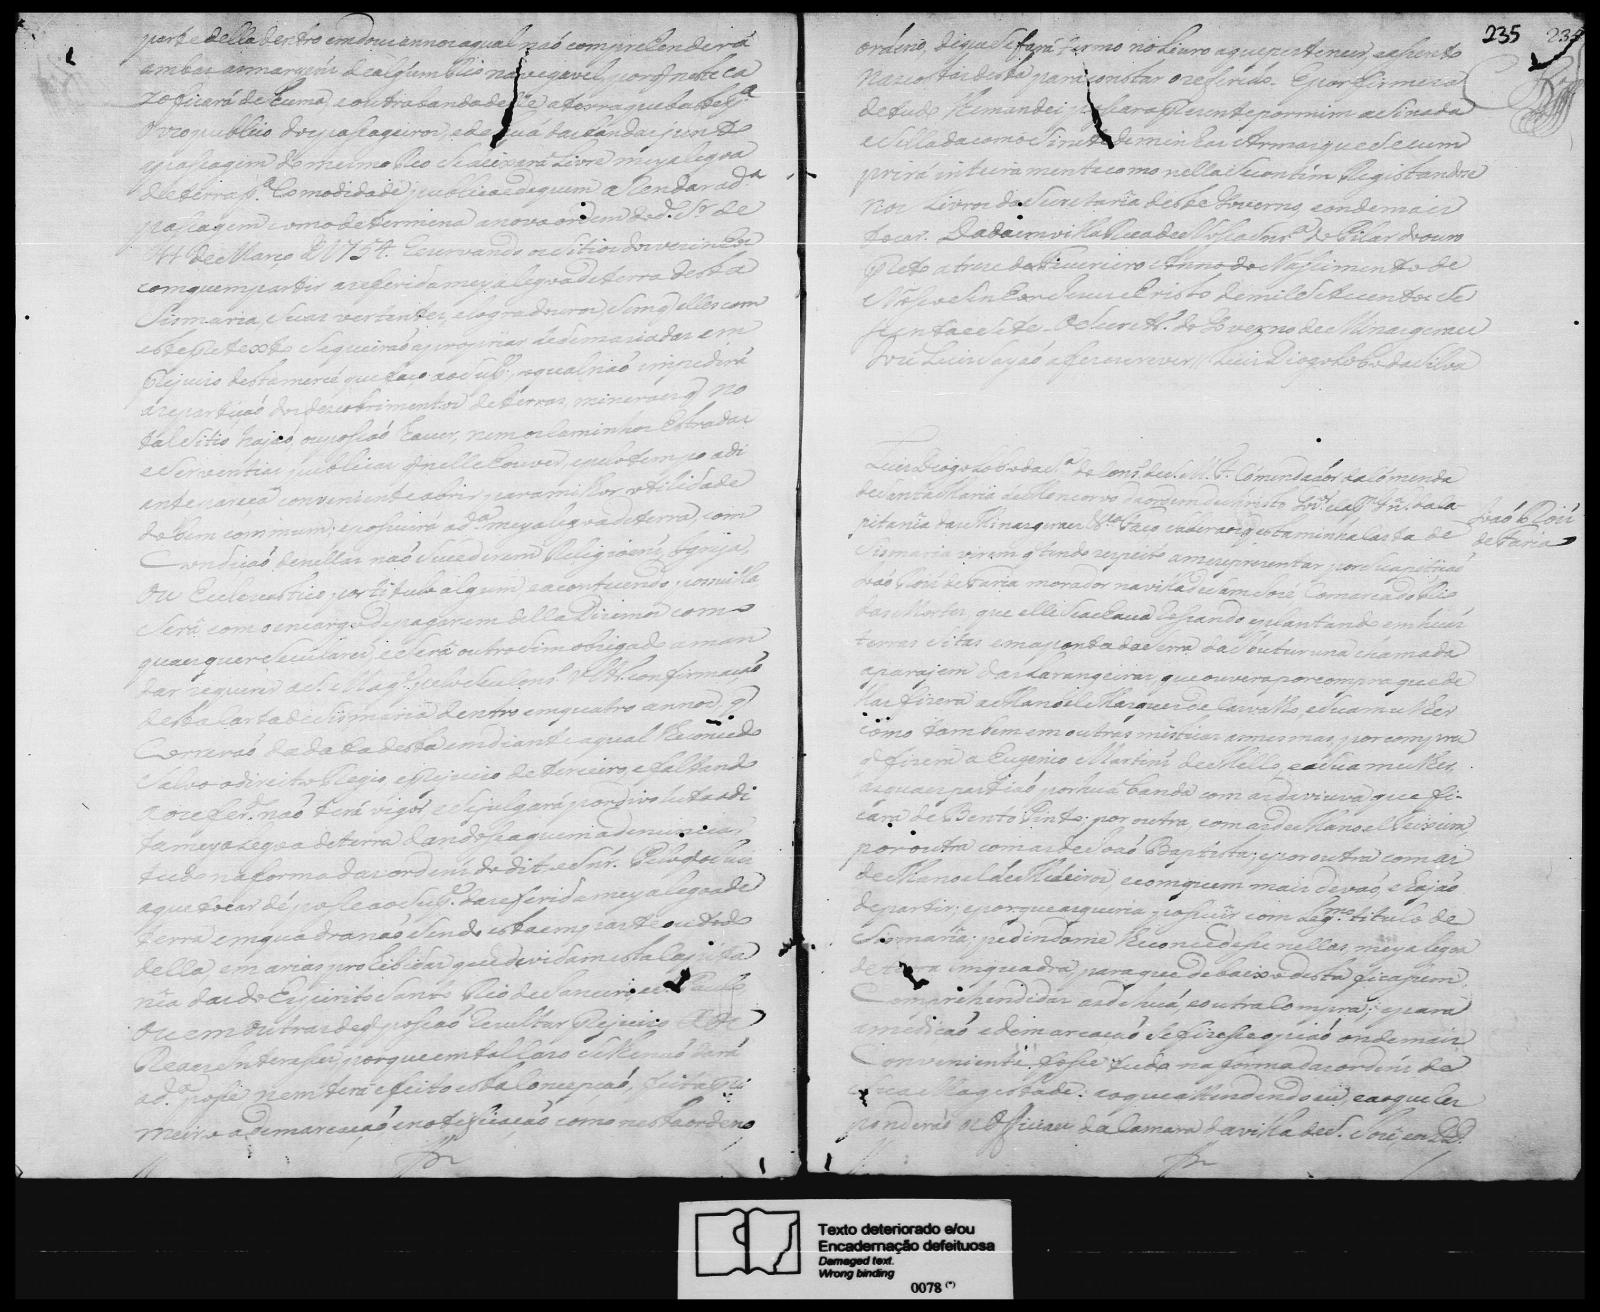 parte della dentro em dous annos a qual naõ comprehenderá
ambas as margens de algum Rio navegavel porq̃ neste ca
zo ficará de huma, e outra banda delle a terra que baste pª
o uzo publico dos passageiros, e de huã das bandas junto
a passagem do mesmo Rio se deixará livre meya legoa
de terra pª comodidade publica, e de quem arrendar a dª
passagem como determina a nova ordem do dº Sr de
11 de Março de 1754. rezervando os sitios dos vezinhos
com quem partir a referida meya legoa de terra desta
Sismaria, suas vertentes, e logradouros, sem q̃ elles com
este pretexto se queiraõ apropriar de demaziadas em
prejuizo desta mercê que faço ao Supe, o qual naõ impedirá
a repartiçaõ dos descobrimentos de terras mineraes q̃ no
tal sitio hajaõ, ou possaõ haver, nem os Caminhos Estradas
e serventias publicas q̃ nelle houver, e pelo tempo adi
ante pareça conveniente abrir para milhor utilidade
do bem commum; e possuirá a dª meya legoa de terra, com
Condiçaõ de nellas naõ sucederem Religioens, Igrejas,
ou Eccleziasticos por titulo algum, e acontecendo possuilla
será com o encargo de pagarem della Dizimos como
quaesquer Seculares, e será outro sim obrigado a man
dar requerer a S. Magde pelo seu Conso Ultro confirmaçaõ
desta Carta de Sismaria dentro em quatro annos, q̃
Correraõ da data desta em diante a qual lhe concedo
salvo o direito Regio e prejuizo de terceiro, e faltando
ao refero naõ terá vigor, e se julgará por devoluta a di
ta meya legoa de terra dando-se a quem a denunciar
tudo na forma das ordens do dito Snr. Pelo q̃ o Juis
a que tocar dê posse ao Supe da referida meya legoa de
terra em quadra naõ sendo esta em parte ou todo
della em arias prohibidas que dividam esta Capita
nia da do Espirito Santo Rio de Janeiro, e S. Paulo
ou em outras de q̃ possaõ rezultar prejuizo aos
Reaes interesses porque em tal cazo se lhe naõ dará
a dª posse nem terá efeito esta Concessaõ, feita pri
meiro a demarcaçaõ e notificaçaõ como nesta ordeno
235
ordeno, de que se fará termo no Livro a que pertencer, e asento
nas costas desta para constar o referido. E por firmeza
de tudo lhe mandei passar a prezente por mim asinada
e sellada com o Sinete de minhas Armas que se cum
prirá inteiramente como nella se contem Registandose
nos Livros da Secretaria deste Governo, e onde mais
tocar. Dada em Villa Rica de Nossa Snrª do Pilar do ouro
Preto a treze de Fevereiro Anno do Nascimento de
Nosso Senhor Jesus Cristo de mil Setecentos Se
senta e Sete. O Secretrº do Governo de Minas geraes
Jozé Luis Sayaõ a fes escrever // Luis Diogo Lobo da Silva
Luis Diogo Lobo da Sª do Conso de S. M. F. Comendador da Comenda
de Santa Maria de Moncorvo da ordem de Christo Govor e Capm Gnl da Ca-
pitania das Minas geraes &ª Faço saber aos q̃ esta minha Carta de
Sismaria virem q̃ tendo respeito a me reprezentar por sua petiçaõ
Joaõ Roiz de Faria morador na Villa de Sam Jozé Comarca do Rio
das Mortes, que elle se achava rossando, e plantando em huãs
terras sitas em a ponta da Serra da chamada
a paragem das Laranjeiras, que ouvera por compra que de
llas fizera a Manoel Marques de Carvalho, e sua mulher
como tambem em outras misticas as mesmas por compra
q̃ fizera a Eugenio Martins de Mello, e a sua mulher
as quaes partiaõ por huã banda com as da viuva que fi-
cara de Bento Pinto; por outra com as de Manoel Teixeira,
por outra com as de Joaõ Baptista; e por outra com as
de Manoel de Medeiros, e com quem mais devaõ, e hajaõ
de partir; e porque as queria possuir com legmo titulo de
Sismaria; pedindome lhe concedesse nellas meya legoa
de terra em quadra, para que debaixo desta ficassem
Comprehendidas as de huã, e outra Compra; e para
a mediçaõ e demarcaçaõ se fizesse piaõ onde mais
Conveniente fosse tudo na forma das ordens de
Sua Magestade: ao que attendendo eu, e ao que res
ponderaõ os Officiaes da Camara da Villa de S. Jozé, em
Joaõ Roiz
de Faria
Texto deteriorado e/ou
Encadernação defeituosa
Damaged text.
Wrong binding
0078 (*)